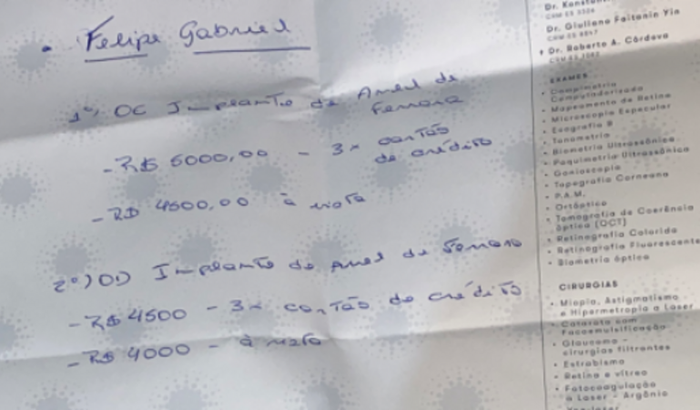 • Felipe Gabriel
1º) OE Implante de Anel de
Ferrara
- R$ 5000,00 - 3x cartão
de crédito
- R$ 4500,00 à vista
2º) OD Implante de Anel de Ferrara
- R$ 4500 - 3x cartão de crédito
- R$ 4000 - à vista
Dr. Giuliano Faitanin Yin
Dr. Roberto A. Córdova
EXAMES
• Campimetria
Computadorizada
• Mapeamento de Retina
• Microscopia Especular
• Ecografia B
• Tonometria
• Biometria Ultrassônica
• Paquimetria Ultrassônica
• Gonioscopia
• Topografia Corneana
• P.A.M.
• Ortóptica
• Tomografia de Coerência
óptica (OCT)
• Retinografia Colorida
• Retinografia Fluorescente
• Biometria óptica
CIRURGIAS
• Miopia, Astigmatismo
e Hipermetropia a Laser
• Catarata com
Facoemulsificação
• Glaucoma -
cirurgias filtrantes
• Estrabismo
• Retina e vítreo
• Fotocoagulação
a Laser - Argônio